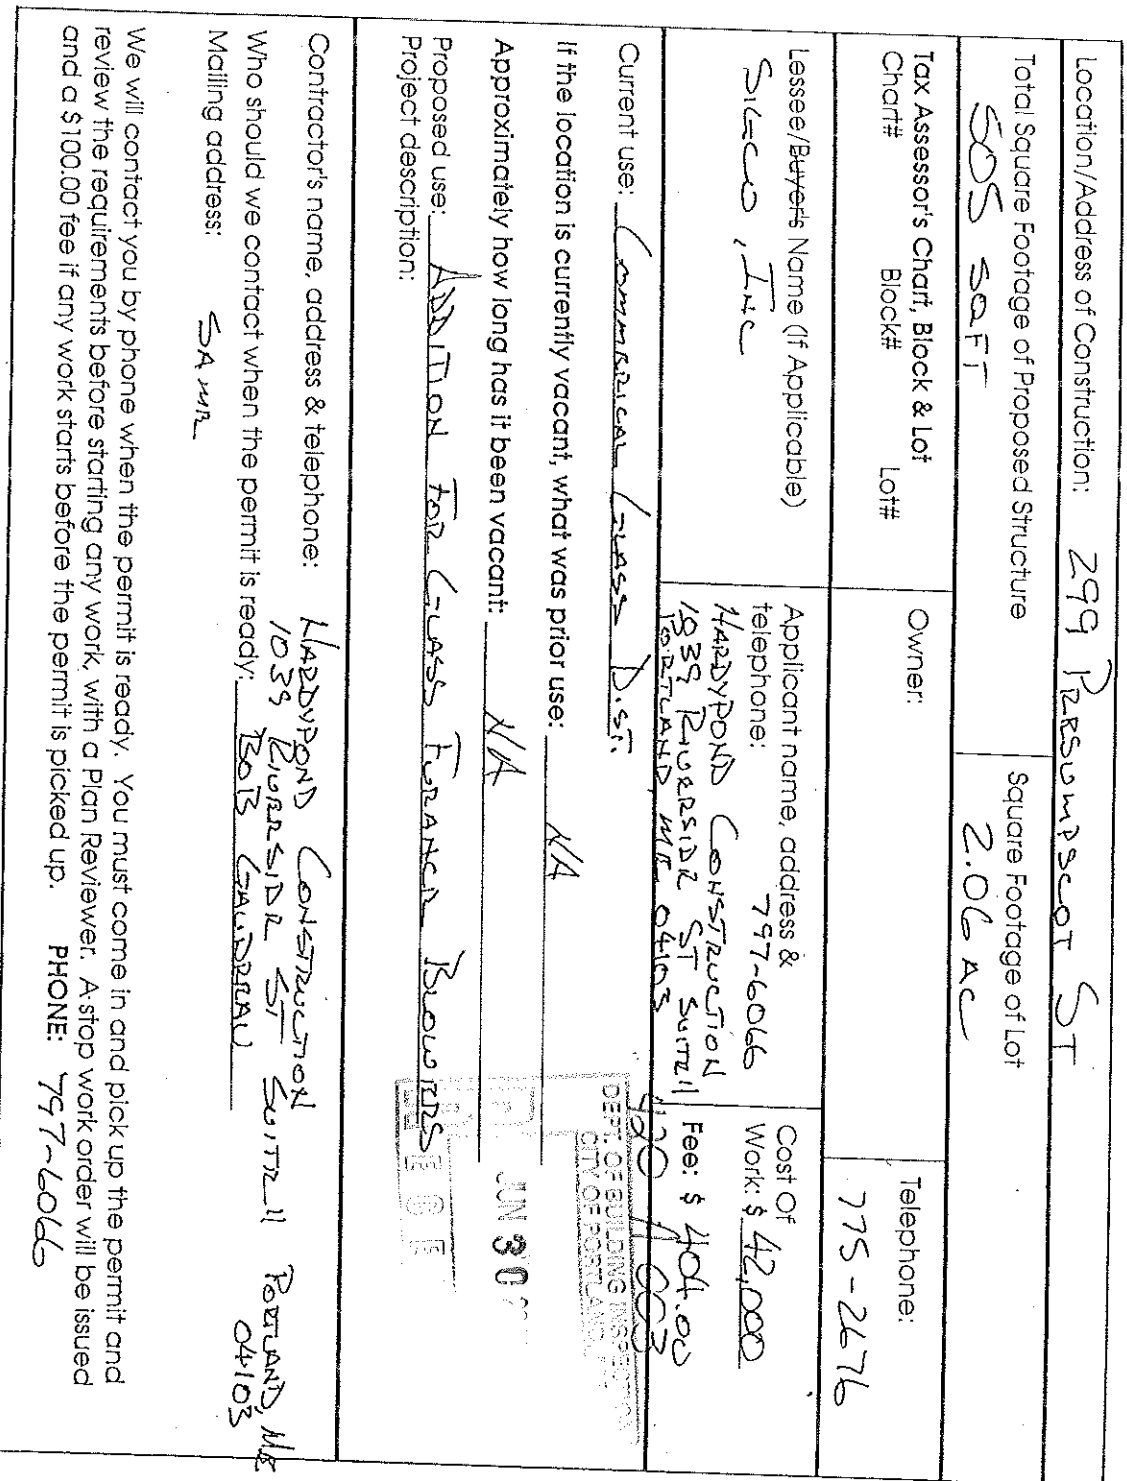 Location/Address of Construction: 299 PRESUMPSCOT ST
Total Square Footage of Proposed Structure
505 SQFT
Square Footage of Lot
2.06 AC
Tax Assessor's Chart, Block & Lot
Chart# Block# Lot#
Owner:
Telephone:
775-2676
Lessee/Buyer's Name (If Applicable)
SIGCO, INC
Applicant name, address &
telephone: 797-6066
HARDYPOND CONSTRUCTION
1039 RIVERSIDE ST SUITE 11
PORTLAND ME 04103
Cost Of
Work: $ 42,000
Fee: $ 404.00
Current use: COMMERICAL GLASS DIST.
If the location is currently vacant, what was prior use: N/A
Approximately how long has it been vacant: N/A
Proposed use: ADDITION FOR GLASS FURANCE BLOWERS
Project description:
DEPT. OF BUILDING INSPECTION
CITY OF PORTLAND
JUN 30
Contractor's name, address & telephone: HARDYPOND CONSTRUCTION
1039 RIVERSIDE ST SUITE 11 PORTLAND, ME
04103
Who should we contact when the permit is ready: BOB GAUDREAU
Mailing address: SAME
We will contact you by phone when the permit is ready. You must come in and pick up the permit and
review the requirements before starting any work, with a Plan Reviewer. A stop work order will be issued
and a $100.00 fee if any work starts before the permit is picked up. PHONE: 797-6066